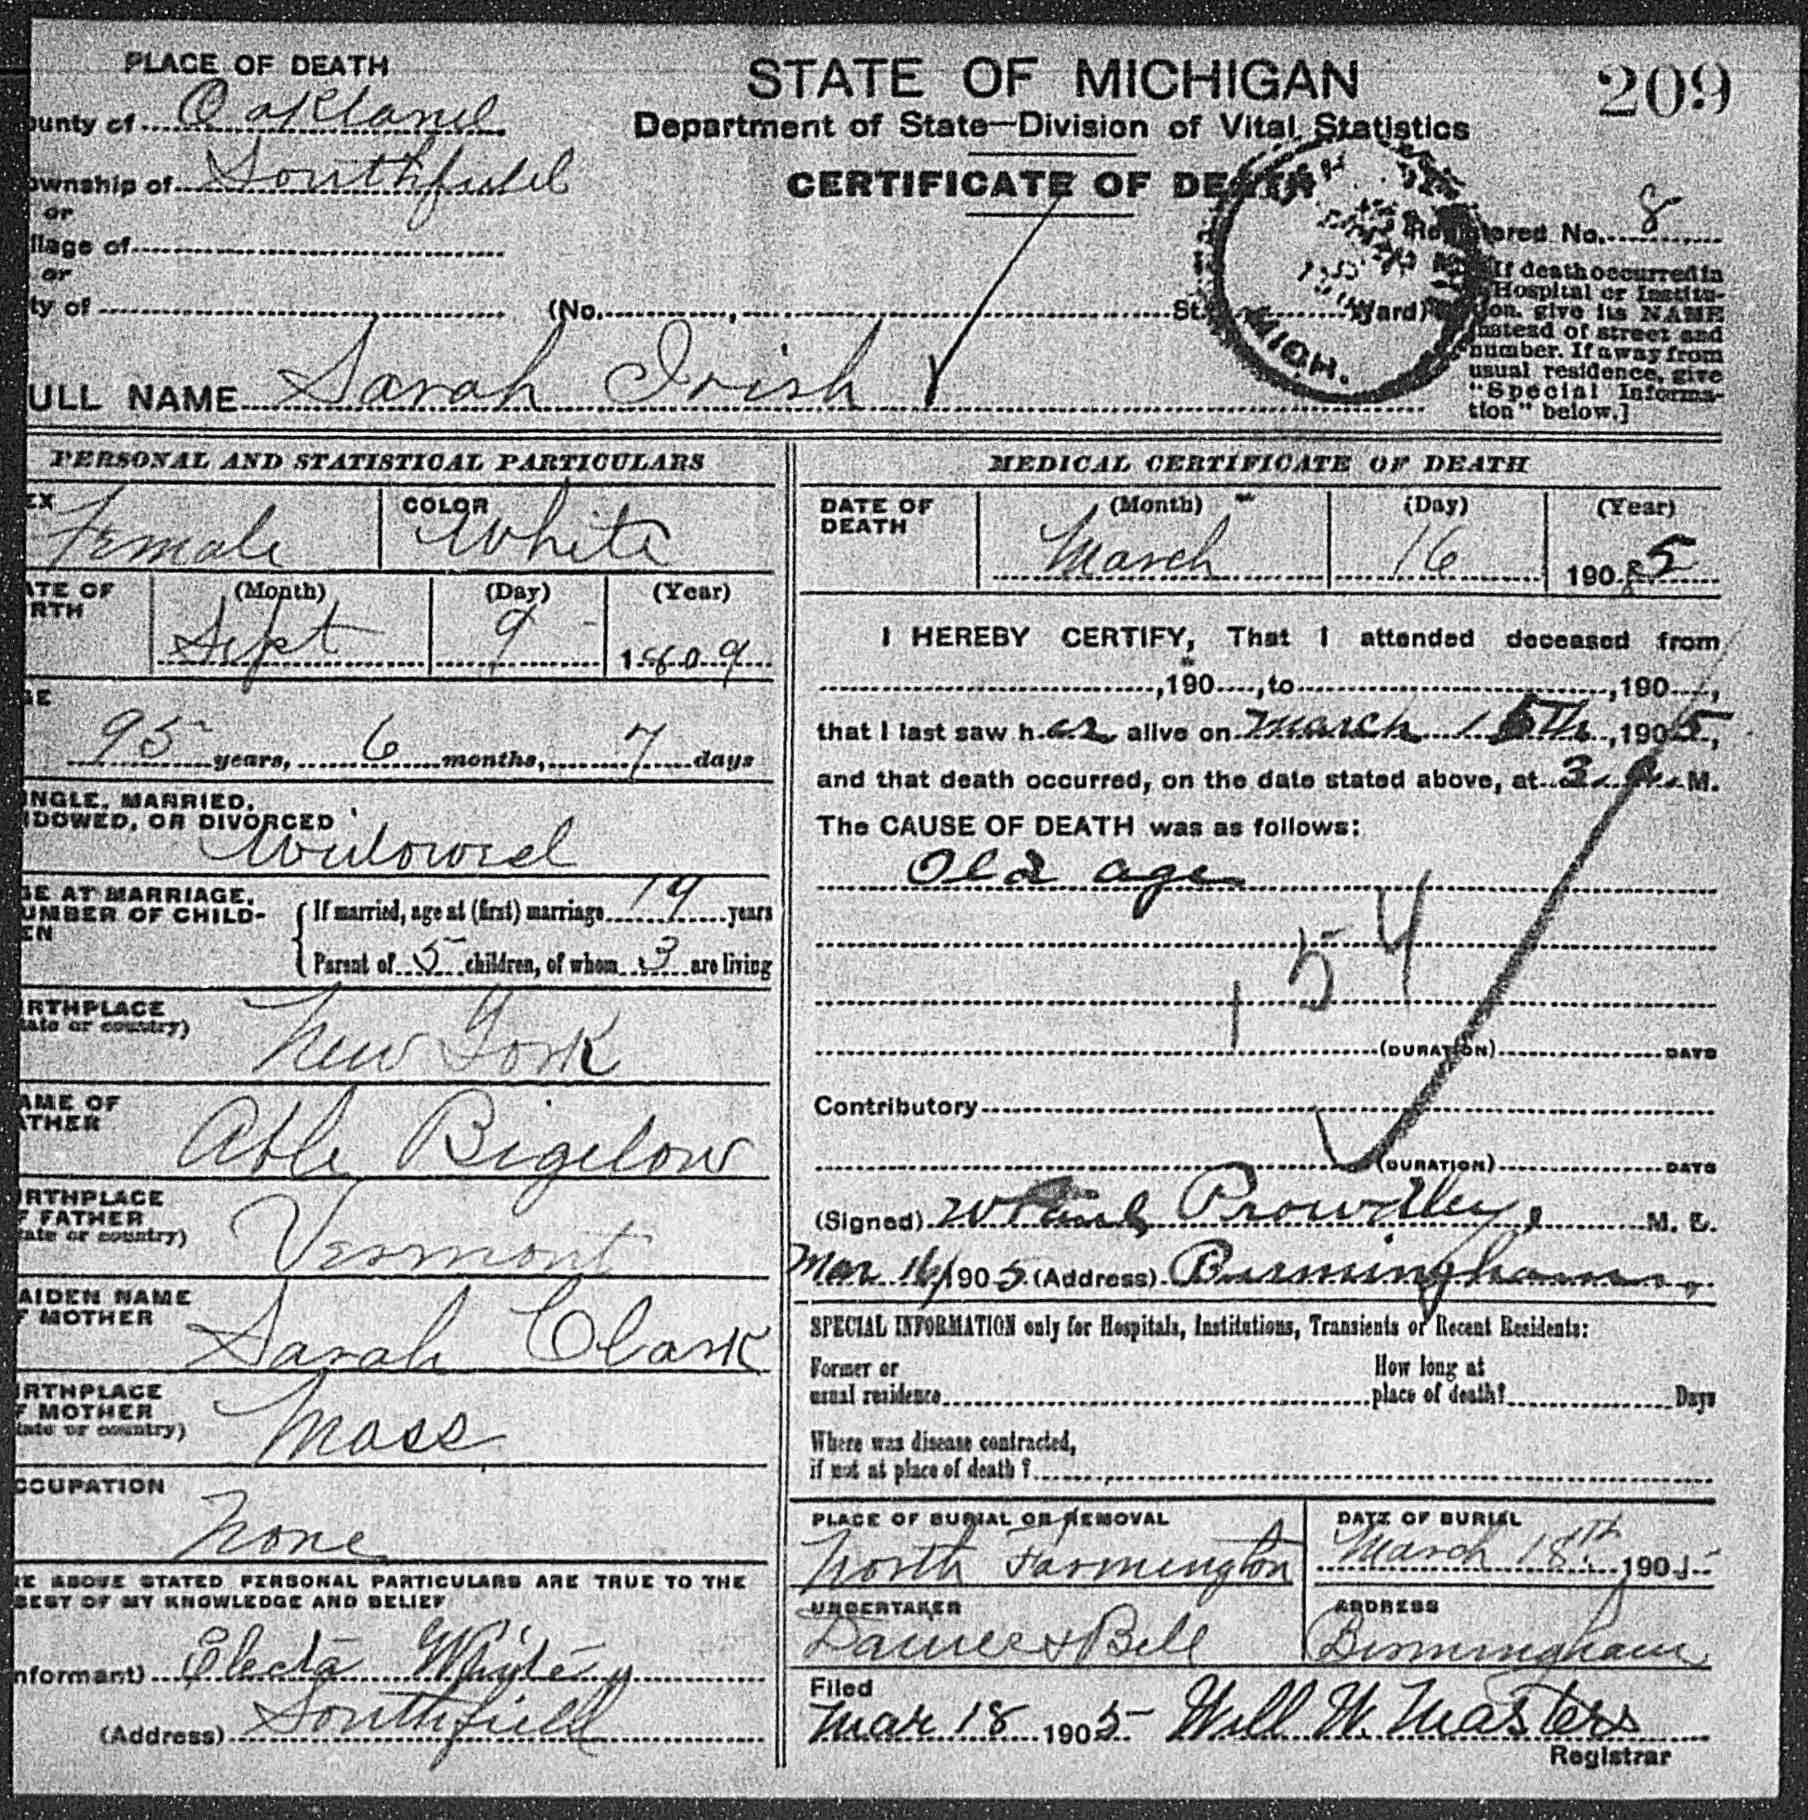 PLACE OF DEATH
STATE OF MICHIGAN
209
ounty of Oakland
Department of State—Division of Vital Statistics
ownship of Southfield
CERTIFICATE OF DEATH
or
llage of
or
ty of (No. , St. Ward)
Registered No. 8
If death occurred in
Hospital or Institu-
on, give its NAME
instead of street and
number. If away from
usual residence, give
"Special Informa-
tion" below.]
MICH.
ULL NAME Sarah Irish
PERSONAL AND STATISTICAL PARTICULARS
EX Female
COLOR White
ATE OF
RTH
(Month) (Day) (Year)
Sept 9 1809
GE
95 years, 6 months, 7 days
NGLE, MARRIED,
IDOWED, OR DIVORCED
Widowed
GE AT MARRIAGE,
UMBER OF CHILD-
EN
If married, age at (first) marriage 19 years
Parent of 5 children, of whom 3 are living
RTHPLACE
tate or country)
New York
AME OF
ATHER
Able Bigelow
IRTHPLACE
F FATHER
tate or country)
Vermont
AIDEN NAME
F MOTHER
Sarah Clark
IRTHPLACE
F MOTHER
tate or country)
Mass
CCUPATION
None
HE ABOVE STATED PERSONAL PARTICULARS ARE TRUE TO THE
BEST OF MY KNOWLEDGE AND BELIEF
nformant) Electa White
(Address) Southfield
MEDICAL CERTIFICATE OF DEATH
DATE OF
DEATH
(Month) (Day) (Year)
March 16 1905
I HEREBY CERTIFY, That I attended deceased from
,190 ,to ,190 ,
that I last saw her alive on March 15th, 1905,
and that death occurred, on the date stated above, at 3 a. M.
The CAUSE OF DEATH was as follows:
Old age
154
(DURATION) DAYS
Contributory
(DURATION) DAYS
(Signed) Prowdley, M. D.
Mar 16, 1905 (Address) Birmingham
SPECIAL INFORMATION only for Hospitals, Institutions, Transients or Recent Residents:
Former or
usual residence
How long at
place of death? Days
Where was disease contracted,
if not at place of death?
PLACE OF BURIAL OR REMOVAL
North Farmington
DATE OF BURIAL
March 18th 1905
UNDERTAKER
& Bell
ADDRESS
Birmingham
Filed
Mar 18 1905 Will W. Masters
Registrar